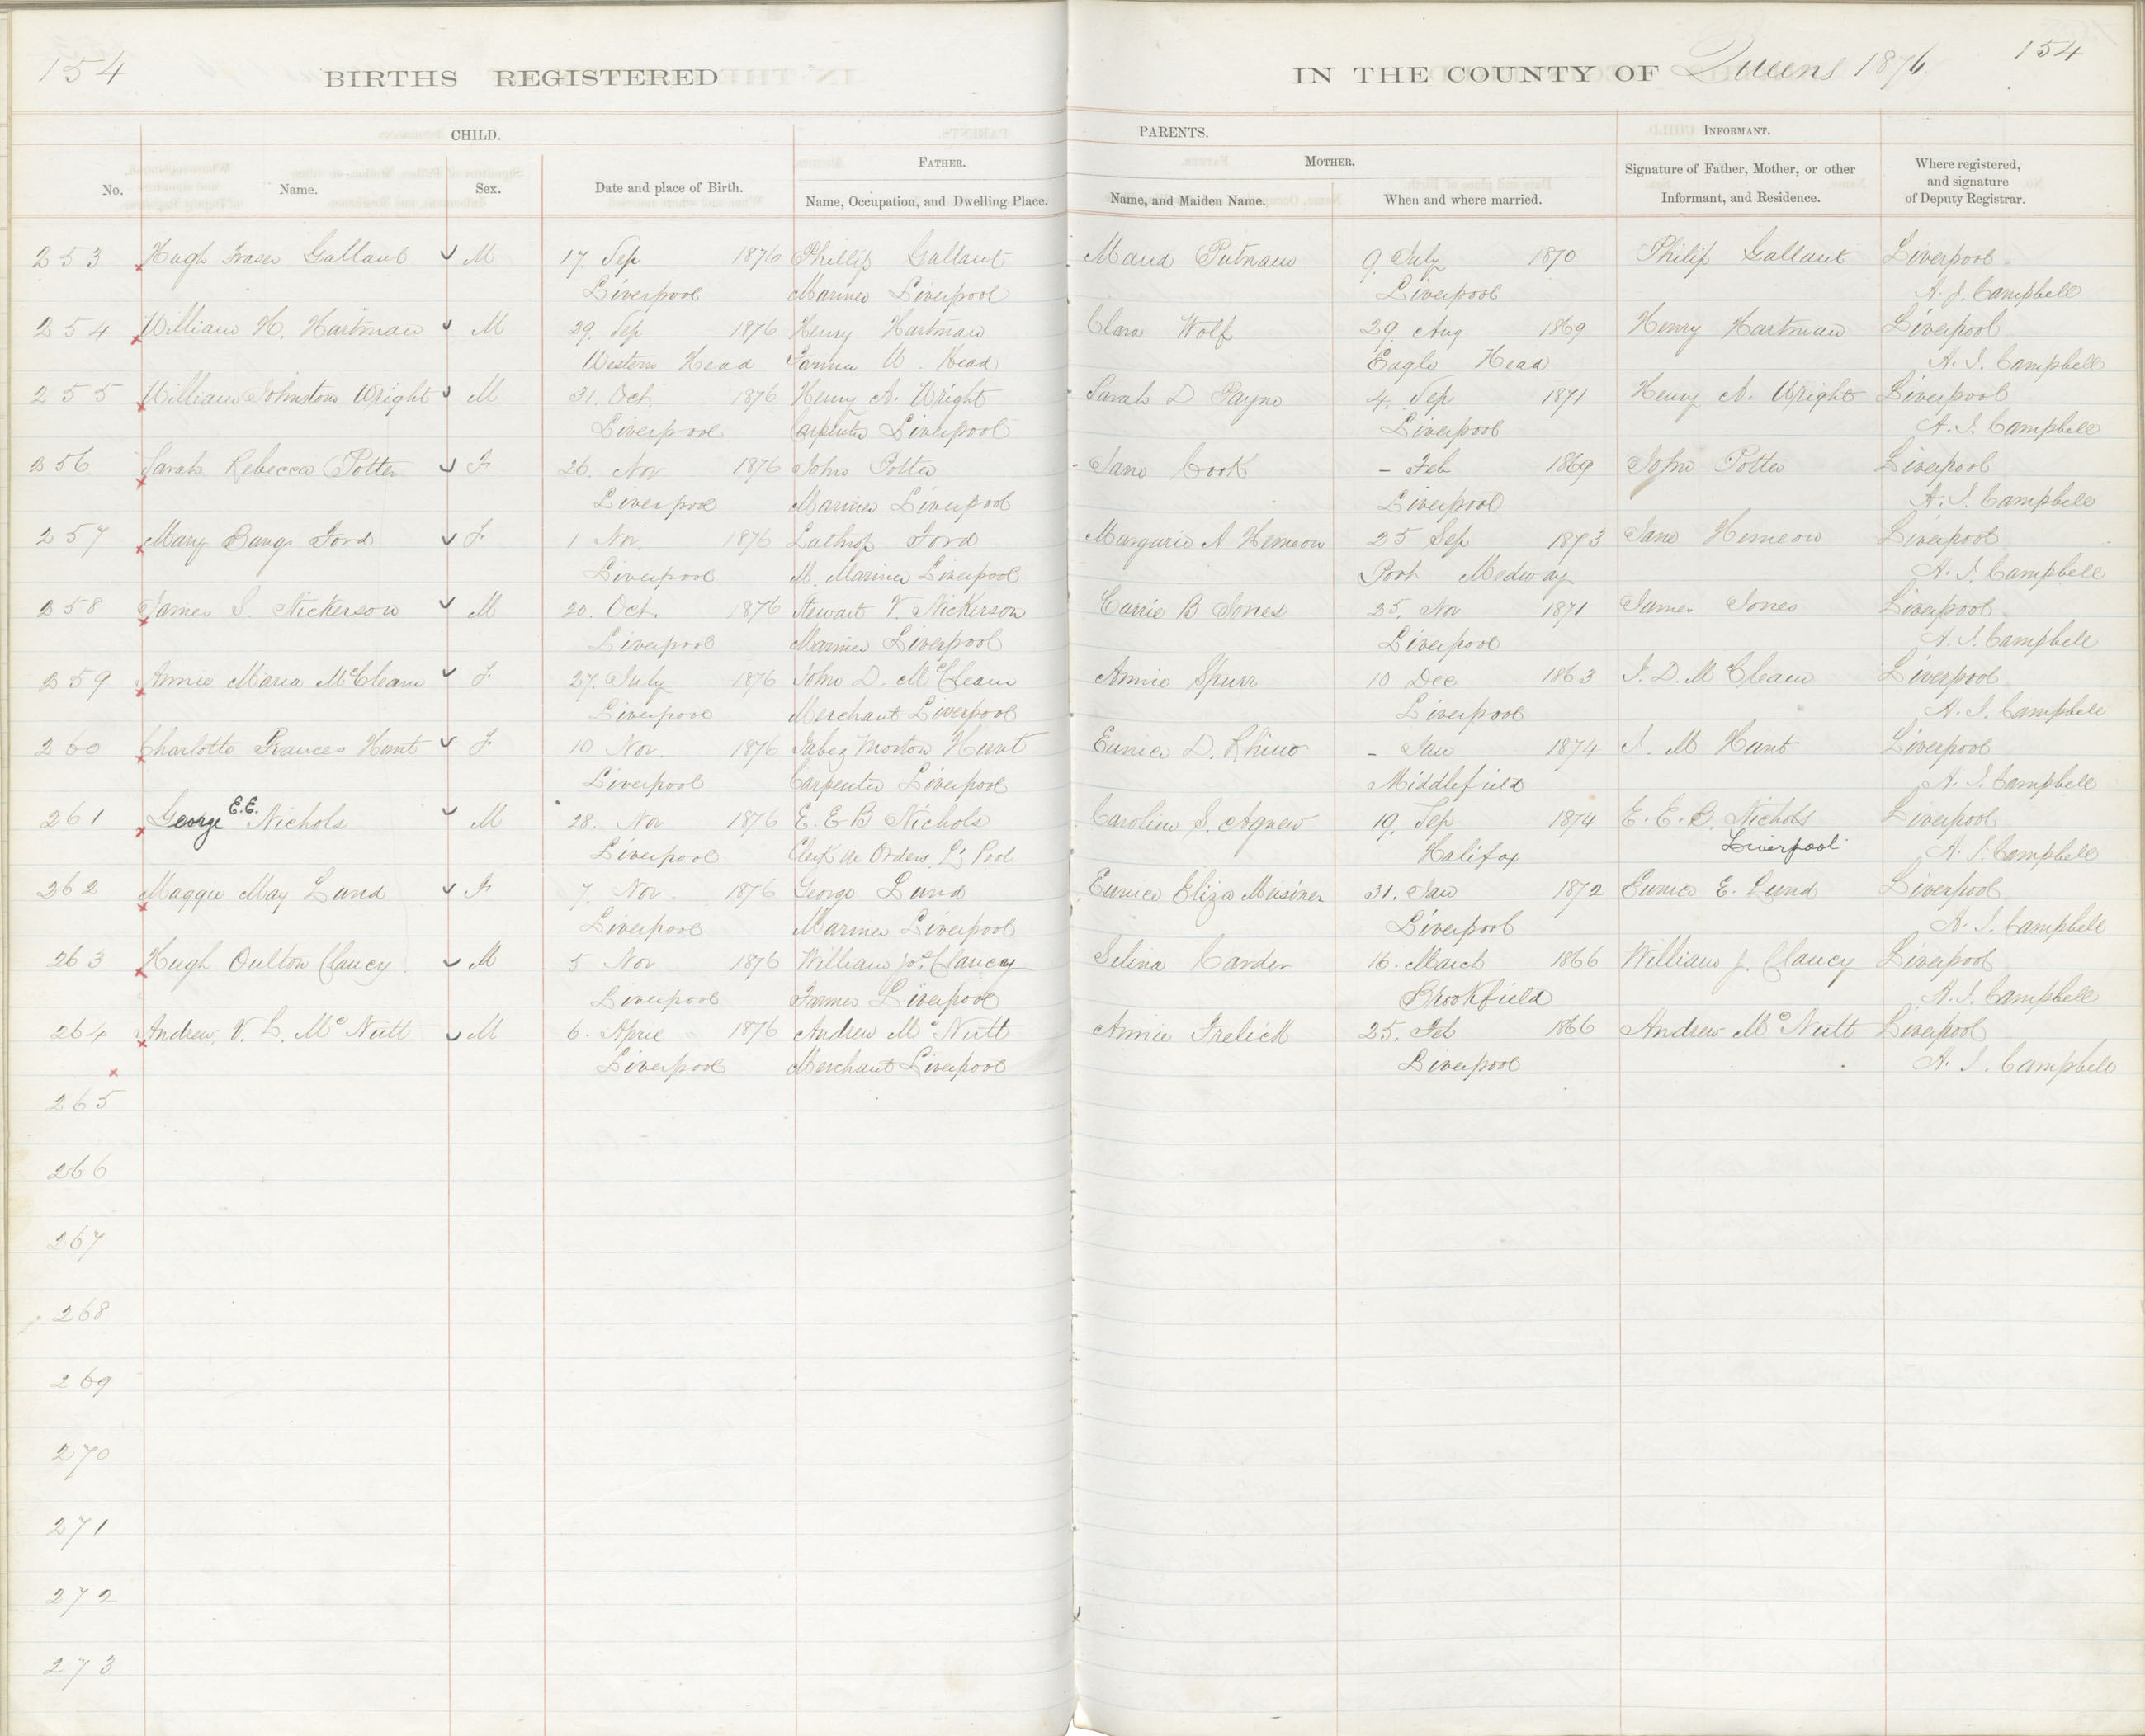 154
BIRTHS REGISTERED
IN THE COUNTY OF Queens 1876
154
CHILD.
PARENTS.
INFORMANT.
No.
Name.
Sex.
Date and place of Birth.
FATHER.
Name, Occupation, and Dwelling Place.
MOTHER.
Name, and Maiden Name.
When and where married.
Signature of Father, Mother, or other
Informant, and Residence.
Where registered,
and signature
of Deputy Registrar.
253 Hugh Fraser Gallant M 17. Sep 1876 Phillip Gallant Maria Putnam 9. July 1870 Philip Gallant Liverpool
Liverpool Mariner Liverpool Liverpool A. J. Campbell
254 William H. Hartman M 29. Sep 1876 Henry Hartman Clara Wolf 29. Aug 1869 Henry Hartman Liverpool
Western Head Farmer W. Head Eagle Head A. J. Campbell
255 William Johnston Wright M 31. Oct. 1876 Henry A. Wright Sarah D Payne 4. Sep 1871 Henry A. Wright Liverpool
Liverpool Carpenter Liverpool Liverpool A. J. Campbell
256 Sarah Rebecca Potter F 26. Nov 1876 John Potter Jane Cook - Feb 1869 John Potter Liverpool
Liverpool Mariner Liverpool Liverpool A. J. Campbell
257 Mary Bangs Ford F. 1 Nov. 1876 Lathrop Ford Margarie A Hemeon 25 Sep 1873 Jane Hemeon Liverpool
Liverpool M. Mariner Liverpool Port Medway A. J. Campbell
258 James S. Nickerson M 20. Oct. 1876 Stewart V. Nickerson Carrie B Jones 25. Nov 1871 James Jones Liverpool
Liverpool Mariner Liverpool Liverpool A. J. Campbell
259 Annie Maria McCleam F. 27. July 1876 John D. McCleam Annie Spurr 10 Dec 1863 J. D. McCleam Liverpool
Liverpool Merchant Liverpool Liverpool A. J. Campbell
260 Charlotte Frances Hunt F. 10 Nov. 1876 Jabez Morton Hunt Eunice D. Rhino - Jan 1874 J. M Hunt Liverpool
Liverpool Carpenter Liverpool Middlefield A. J. Campbell
261 George E.E. Nichols M 28. Nov 1876 E. E B Nichols Caroline S. Agnew 19. Sep 1874 E. E. B. Nichols Liverpool
Liverpool Clerk Orders L' Pool Halifax Liverpool A. J. Campbell
262 Maggie May Lund F 7. Nov. 1876 George Lund Eunice Eliza Meisiner 31. Jan 1872 Eunice E. Lund Liverpool
Liverpool Mariner Liverpool Liverpool A. J. Campbell
263 Hugh Oulton Clancy M 5 Nov 1876 William Jos. Clancey Selina Carder 16. March 1866 William J. Clancy Liverpool
Liverpool Farmer Liverpool Brookfield A. J. Campbell
264 Andrew V. L. McNutt M 6. April 1876 Andrew McNutt Annie Frelick 25. Feb 1866 Andrew McNutt Liverpool
Liverpool Merchant Liverpool Liverpool A. J. Campbell
265
266
267
268
269
270
271
272
273